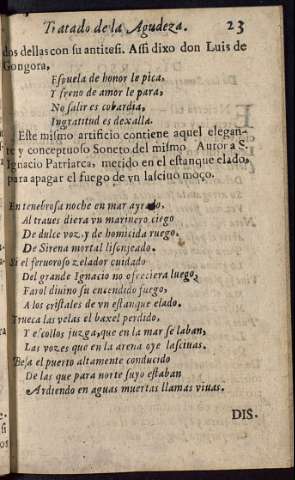 Tratado de la Agudeza. 23
dos dellas con su antitesi. Assi dixo don Luis de
Gongora,
Espuela de honor le pica,
Y freno de amor le para,
No salir es cobardia,
Ingratitud es dexalla.
Este mismo artificio contiene aquel elegan-
te y conceptuoso Soneto del mismo Autor a S.
Ignacio Patriarca, metido en el estanque elado,
para apagar el fuego de vn lasciuo moço.
En tenebrosa noche en mar ayrado.
Al traues diera vn marinero ciego
De dulce voz, y de homicida ruego.
De Sirena mortal lisonjeado.
Si el feruoroso zelador cuidado
Del grande Ignacio no ofreciera luego,
Farol diuino su encendido fuego,
A los cristales de vn estanque elado.
Trueca las velas el baxel perdido,
Y escollos juzga, que en la mar se laban,
Las vozes que en la arena oye lasciuas.
Besa el puerto altamente conducido
De las que para norte suyo estaban
Ardiendo en aguas muertas llamas viuas.
DIS.